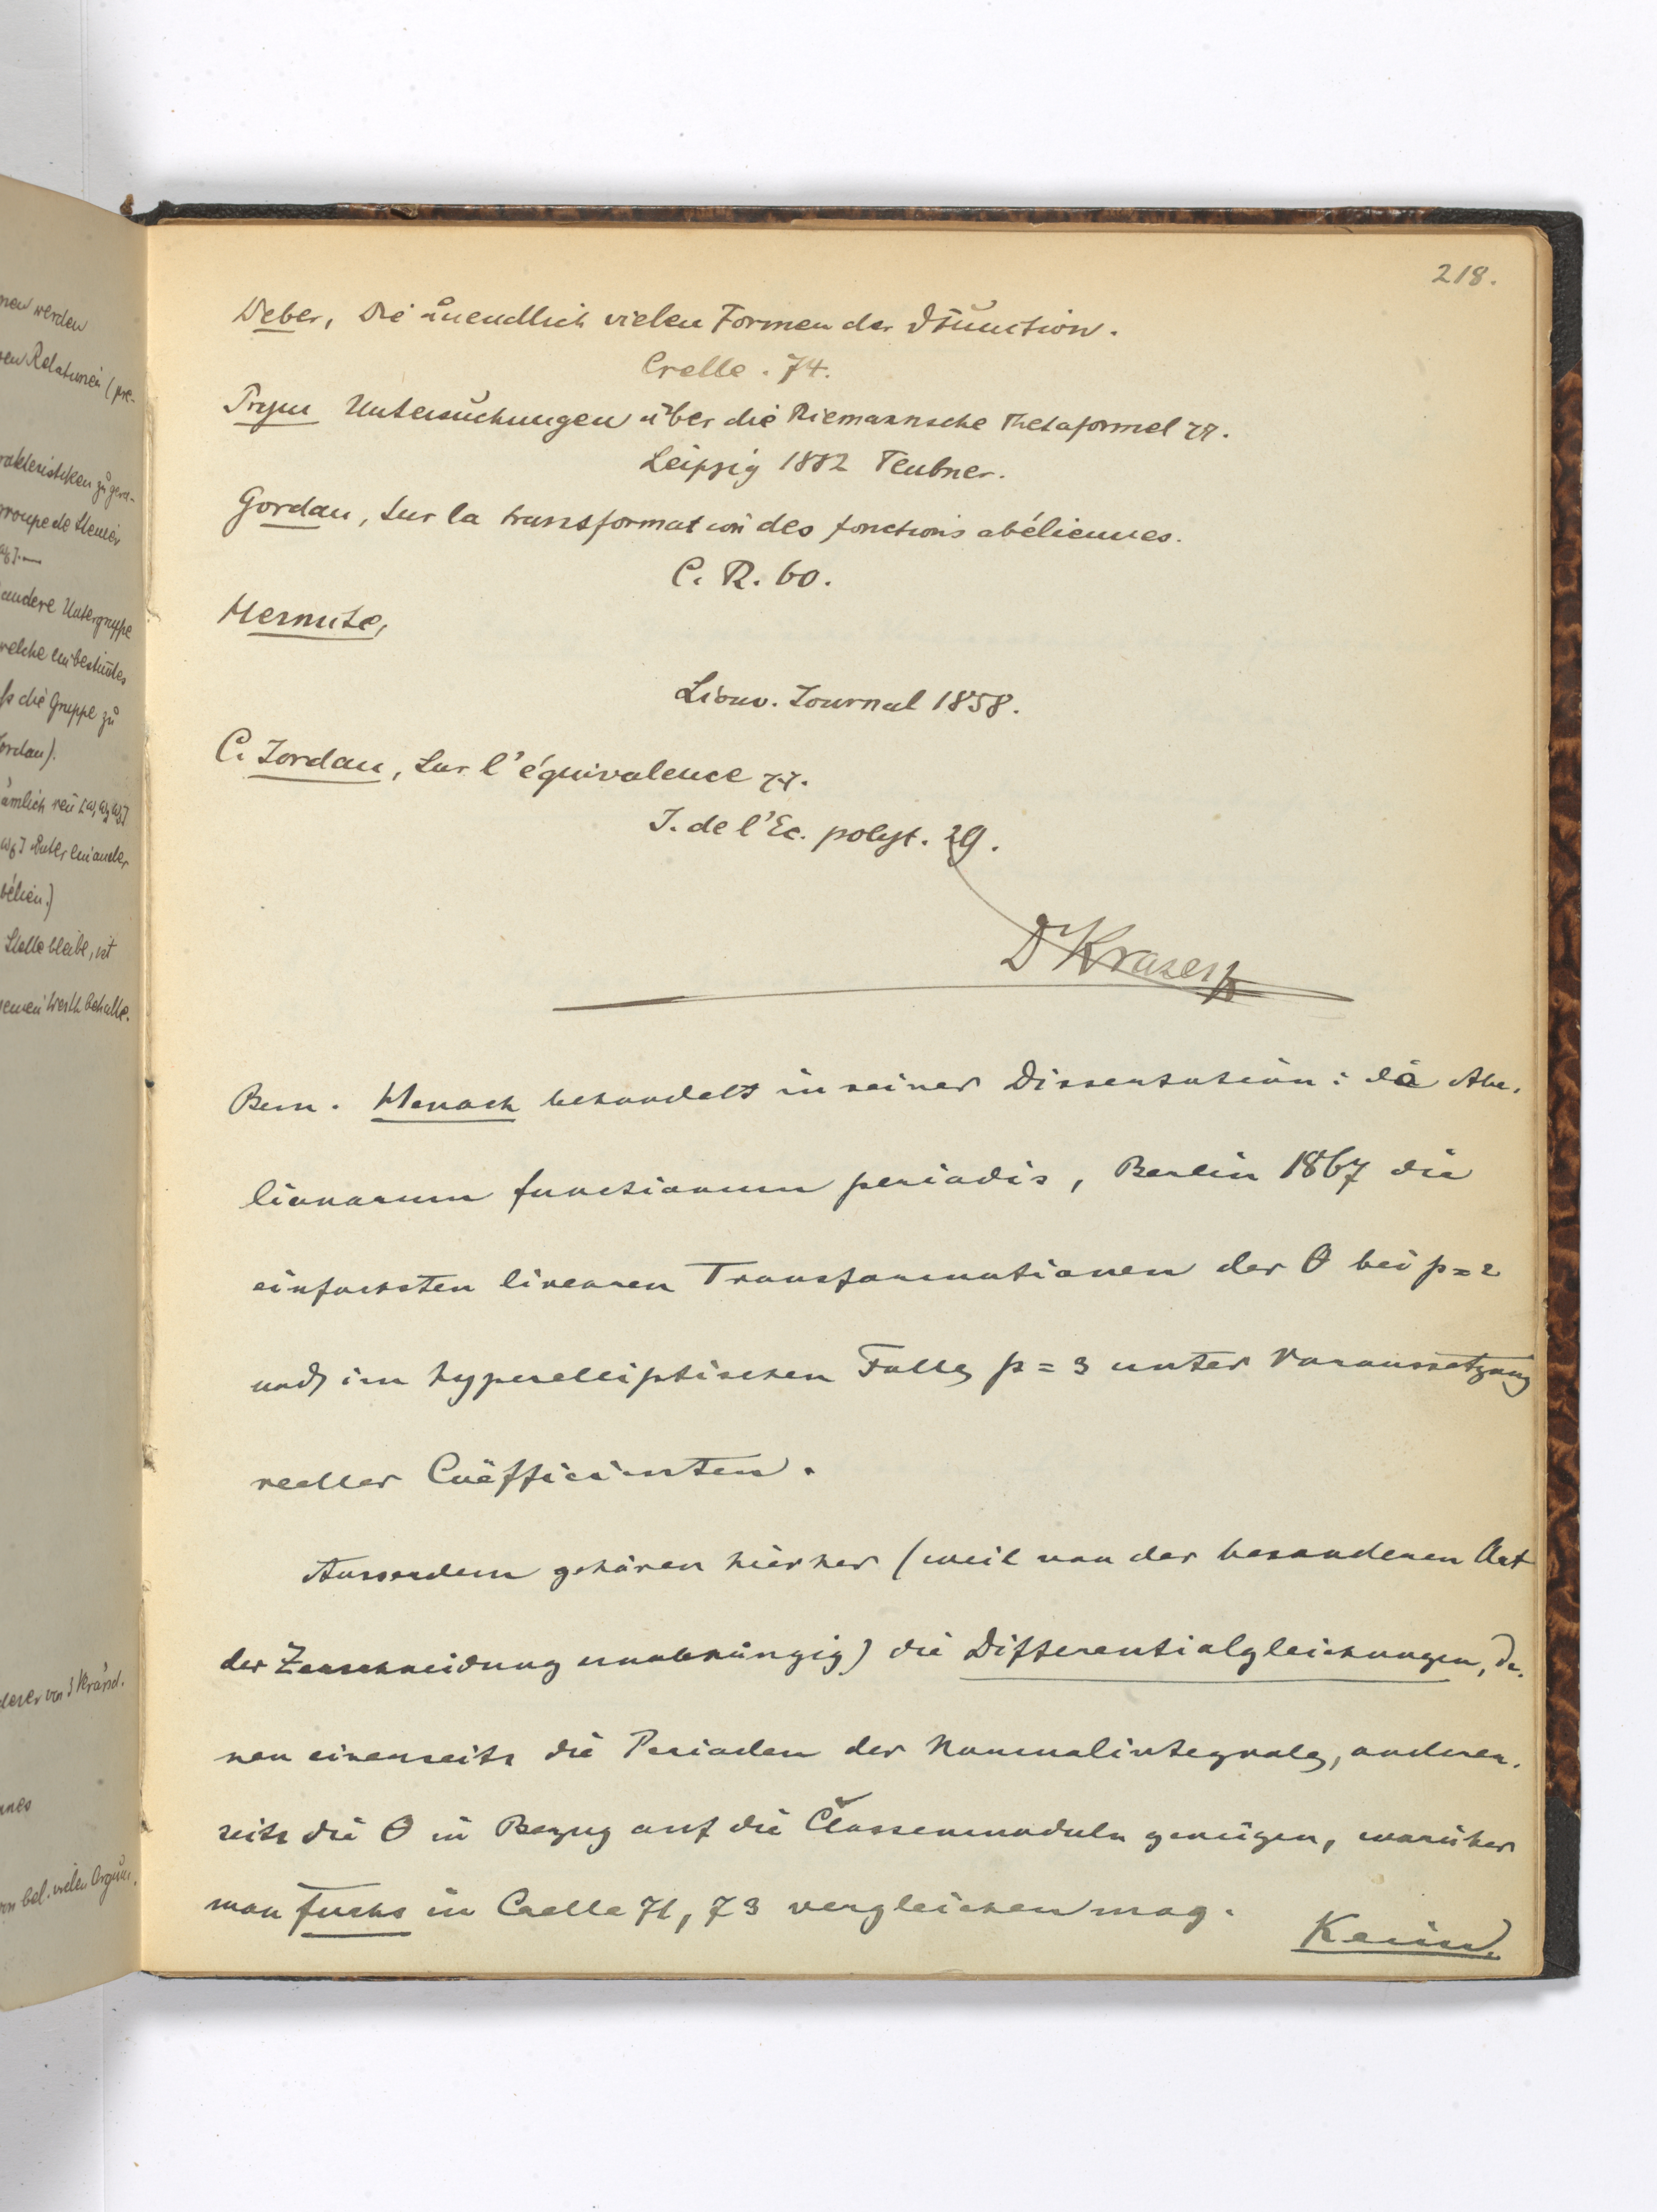 218.
Weber, Die unendlich vielen Formen der ϑfunction.
Crelle. 74.
Prym Untersuchungen über die Riemannsche Thetaformel rr.
Leipzig 1882 Teubner.
Gordan, Sur la transformation des fonctions abéliennes.
C. R. 60.
Hermite,
Liouv. Journal 1858.
C. Jordan, Sur l'équivalence rr.
J. de l'Ec. polyt. 29.
Dr Krazer
Bem. Henoch behandelt in seiner Dissertation: de Abe-
lianarum functionum periodis, Berlin 1867 die
einfachsten linearen Transformationen der θ bei p=2
und im hyperelliptischen Falle p=3 unter Voraussetzung
reeller Coëfficienten.
Ausserdem gehören hierher (weil von der besonderen Art
der Zerschneidung unabhängig) die Differentialgleichungen, de-
nen einerseits die Perioden der Normalintegrale, anderer-
seits die θ in Bezug auf die Classenmoduln genügen, worüber
man Fuchs in Crelle 71, 73 vergleichen mag.
nen werden
en Relationen (pre-
rakteristiken zu
groupe de Steiner
andere Untergruppe
welche unbestimtes
ss die Gruppe zu
ordan).
ämlich
unter einander
Stelle bleibe, ist
seinen Werth behalte.
von bel. vielen Argum.